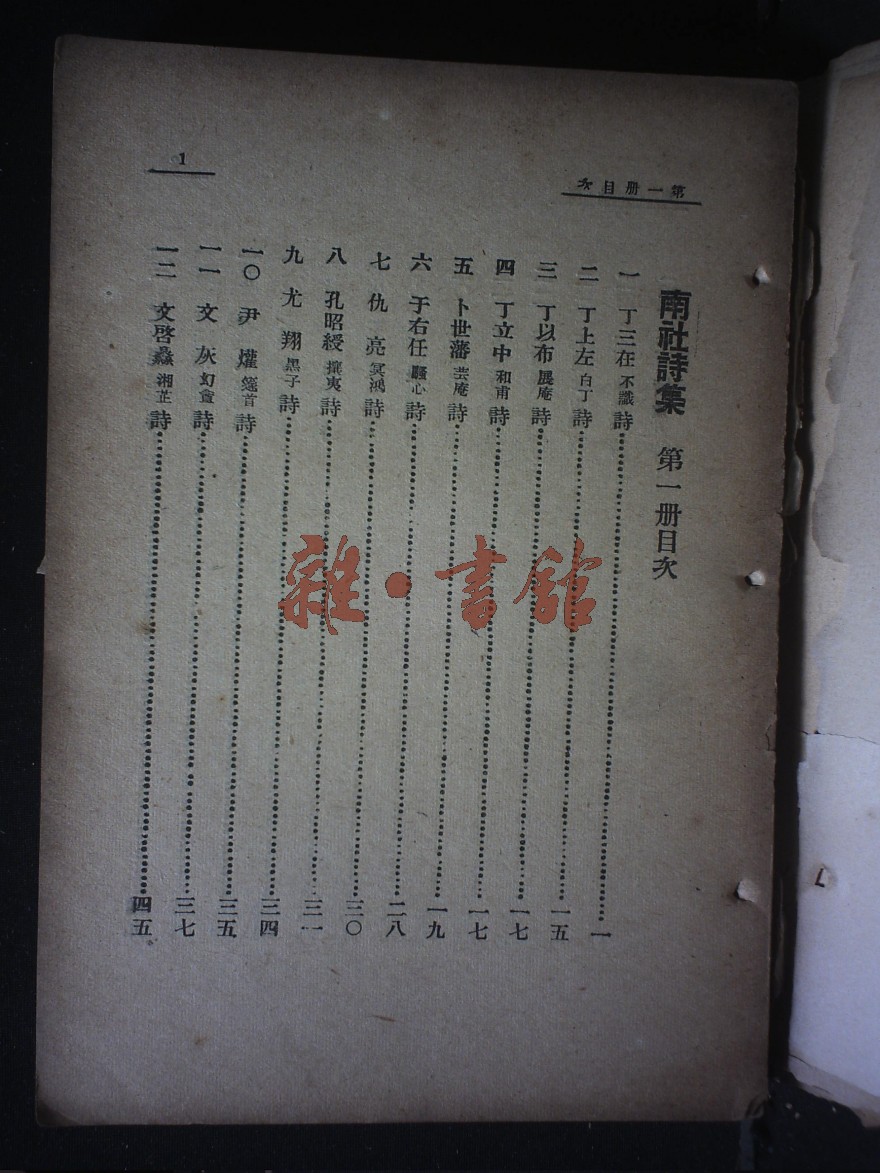 第一册目次
1
南社詩集 第一册目次
一 丁三在 不識 詩 一
二 丁上左 白丁 詩 一五
三 丁以布 展庵 詩 一七
四 丁立中 和甫 詩 一七
五 卜世藩 芸庵 詩 一九
六 于右任 騷心 詩 二八
七 仇亮 冥鴻 詩 三〇
八 孔昭綬 攘夷 詩 三一
九 尤翔 黑子 詩 三四
一〇 尹爟 笏首 詩 三五
一一 文灰 幻盦 詩 三七
一二 文啓蠡 湘芷 詩 四五
雜·書館
L